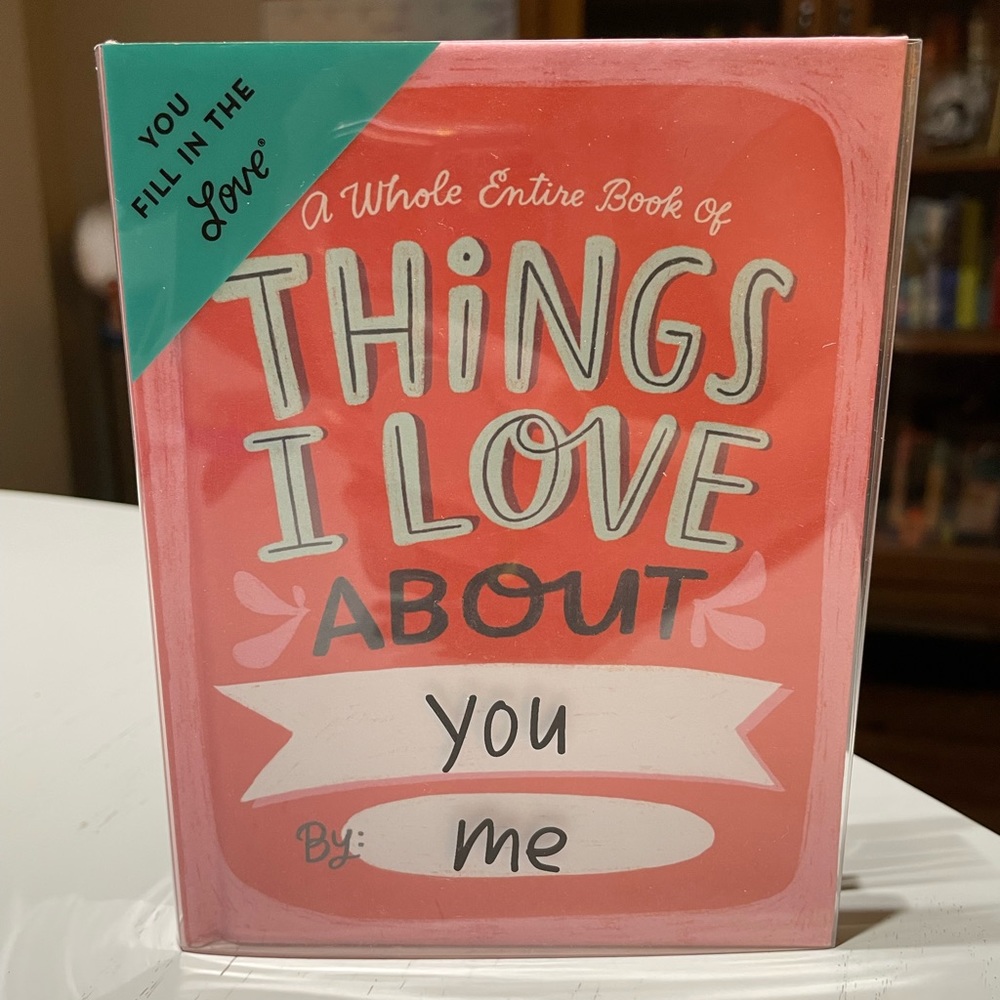 YOU
FILL IN THE
Love®
A Whole Entire Book of
THiNGS
I LOVE
ABOUT
you
By: me